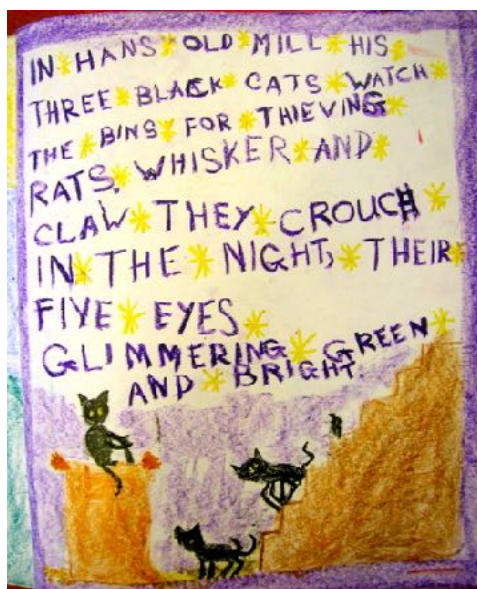 IN HANS OLD MILL HIS
THREE BLACK CATS WATCH
THE BINS FOR THIEVING
RATS. WHISKER AND
CLAW THEY CROUCH
IN THE NIGHT, THEIR
FIVE EYES
GLIMMERING GREEN
AND BRIGHT.